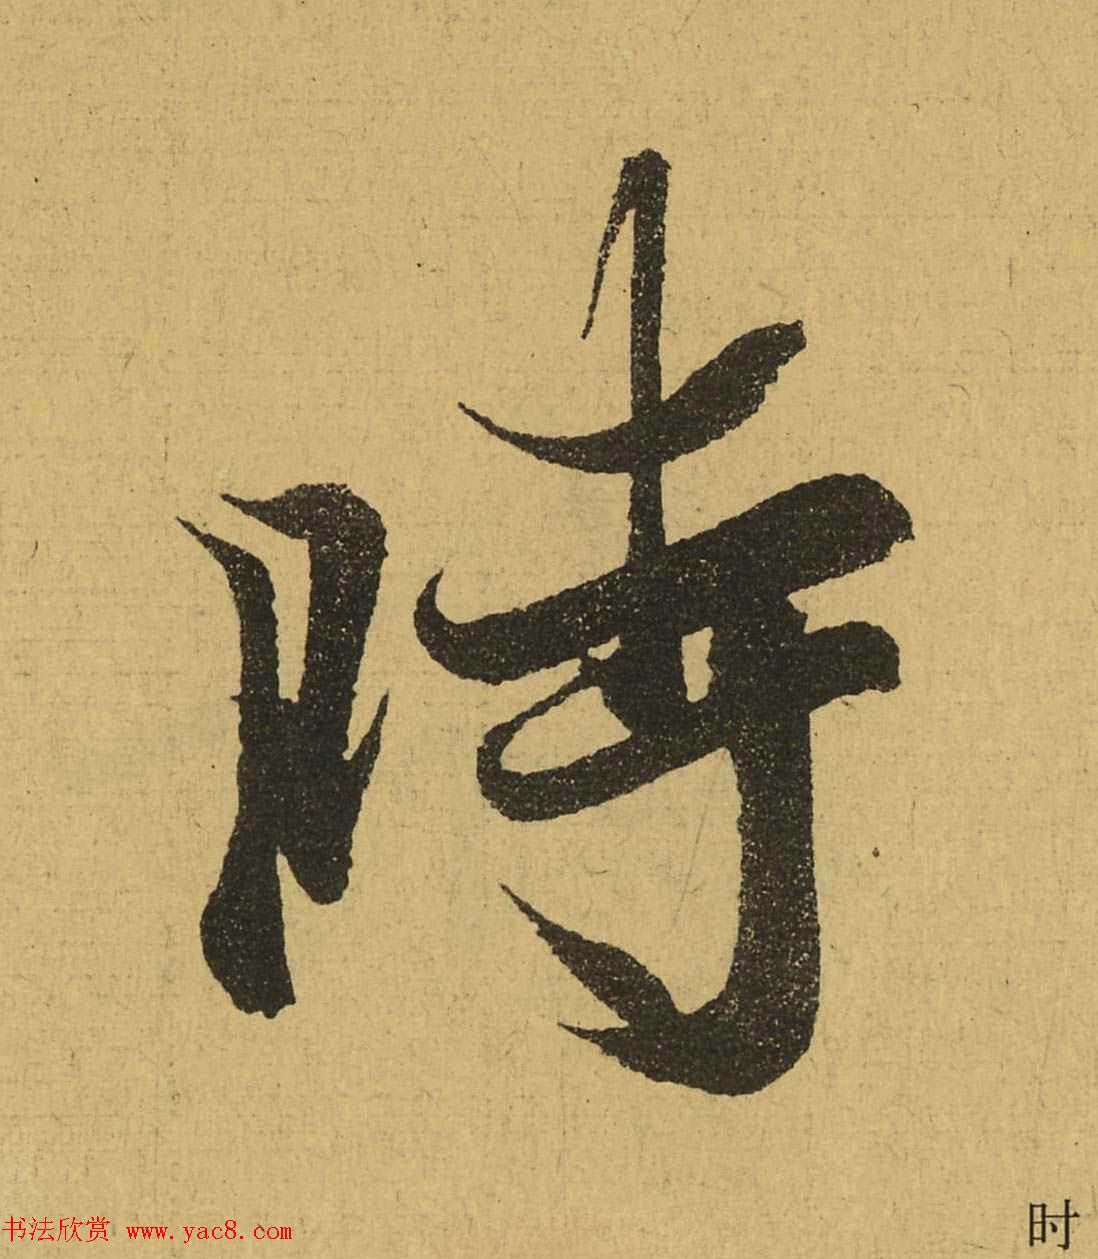 時
书法欣赏 www.yac8.com
时